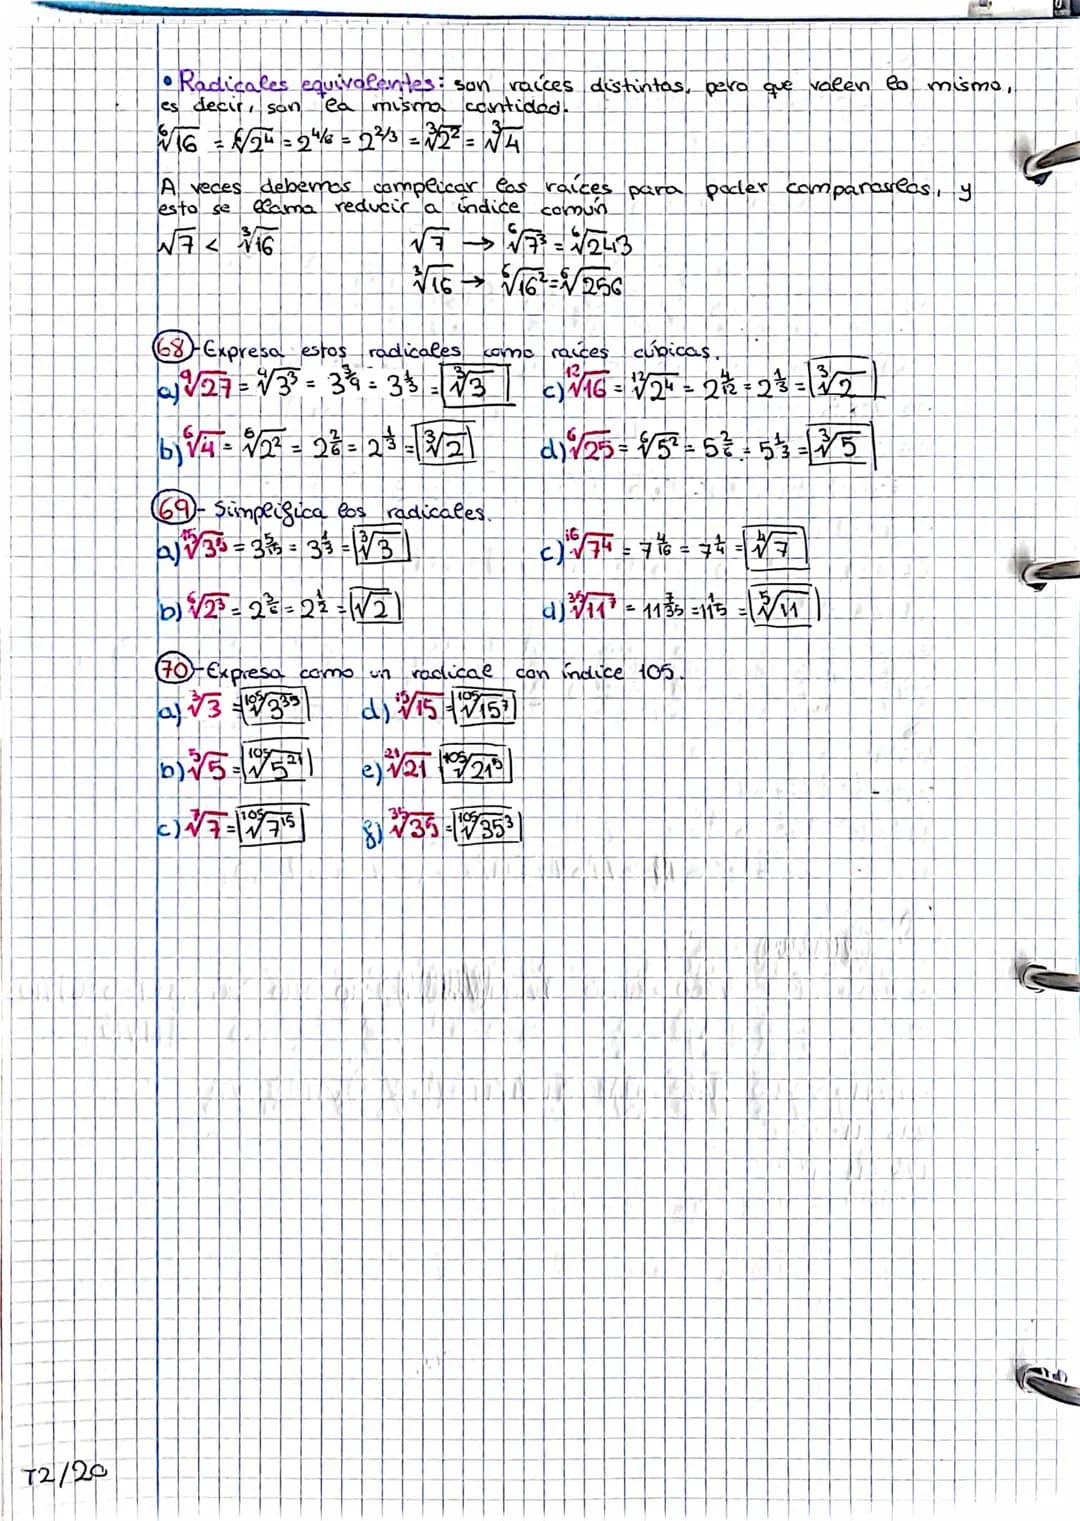 • Radicales equivalentes: son raíces distintas, pero que valen lo mismo,
es decir, son la misma cantidad.
⁶√16 = ⁶√2⁴ = 2^4/6 = 2^2/3 = ³√2² = ³√4
A veces debemos complicar las raíces para poder compararlas, y
esto se llama reducir a índice común
√7 < ³√16 √7 → ⁶√7³ = ⁶√243
³√16 → ⁶√16² = ⁶√256
68 - Expresa estos radicales como raíces cúbicas.
a) ⁹√27 = ⁹√3³ = 3^3/9 = 3^1/3 = ³√3 c) ¹²√16 = ¹²√2⁴ = 2^4/12 = 2^1/3 = ³√2
b) ⁶√4 = ⁶√2² = 2^2/6 = 2^1/3 = ³√2 d) ⁶√25 = ⁶√5² = 5^2/6 = 5^1/3 = ³√5
69 - Simplifica los radicales.
a) ¹⁵√3⁵ = 3^5/15 = 3^1/3 = ³√3 c) ¹⁶√7⁴ = 7^4/16 = 7^1/4 = ⁴√7
b) ⁶√2³ = 2^3/6 = 2^1/2 = √2 d) ³⁵√11⁷ = 11^7/35 = 11^1/5 = ⁵√11
70 - Expresa como un radical con índice 105.
a) ³√3 = ¹⁰⁵√3³⁵ d) ¹⁵√15 = ¹⁰⁵√15⁷
b) ⁵√5 = ¹⁰⁵√5²¹ e) ²¹√21 ¹⁰⁵√21⁵
c) ⁷√7 = ¹⁰⁵√7¹⁵ f) ³⁵√35 = ¹⁰⁵√35³
T2/20